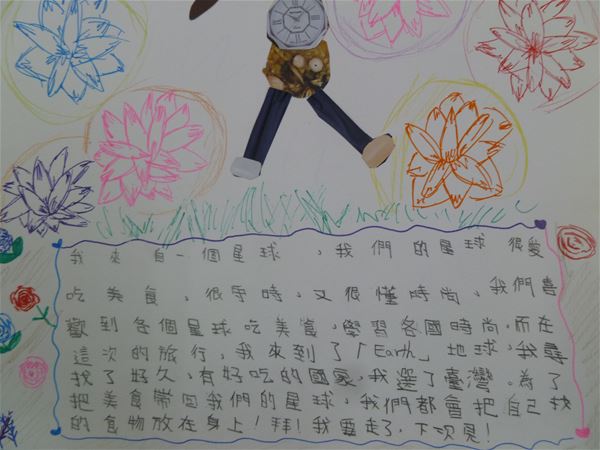 我來自一個星球,我們的星球很愛
吃美食,很守時,又很懂時尚,我們喜
歡到各個星球吃美食,學習各國時尚,而在
這次的旅行,我來到了「Earth」地球,我尋
找了好久,有好吃的國家,我選了臺灣,為了
把美食帶回我們的星球,我們都會把自己找
的食物放在身上!拜!我要走了,下次見!